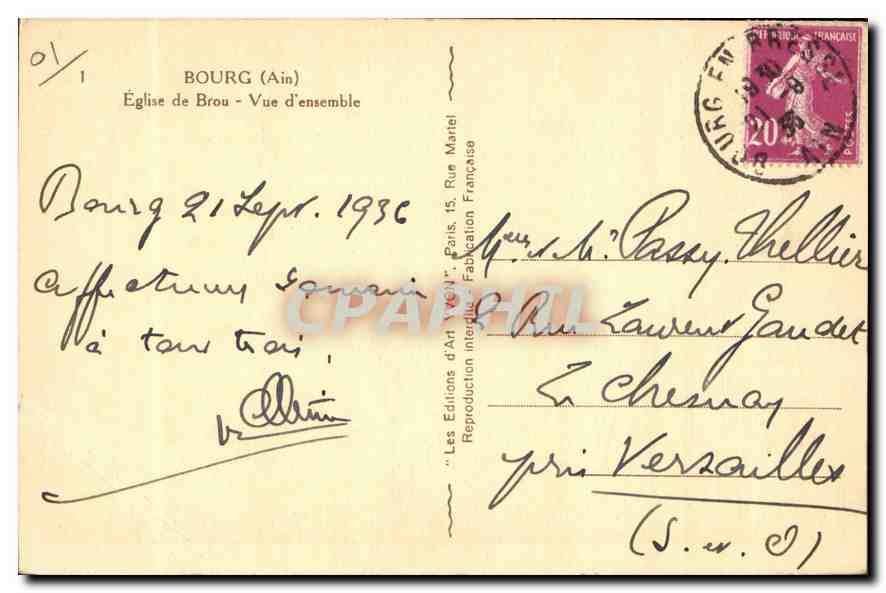 01/
1
BOURG (Ain)
Église de Brou - Vue d'ensemble
Bourg 21 Sept. 1936
affectueux souvenir
à tous trois,
"Les Editions d'Art "YVON", Paris, 15, Rue Martel
Reproduction interdite Fabrication Française
CPAPHIL
FRANÇAISE
20
POSTES
BOURG EN BRESSE
AIN
et Mr Passy. Thellier
Rue Laurent Gaudet
Le Chesnay
près Versailles
(S. et O)